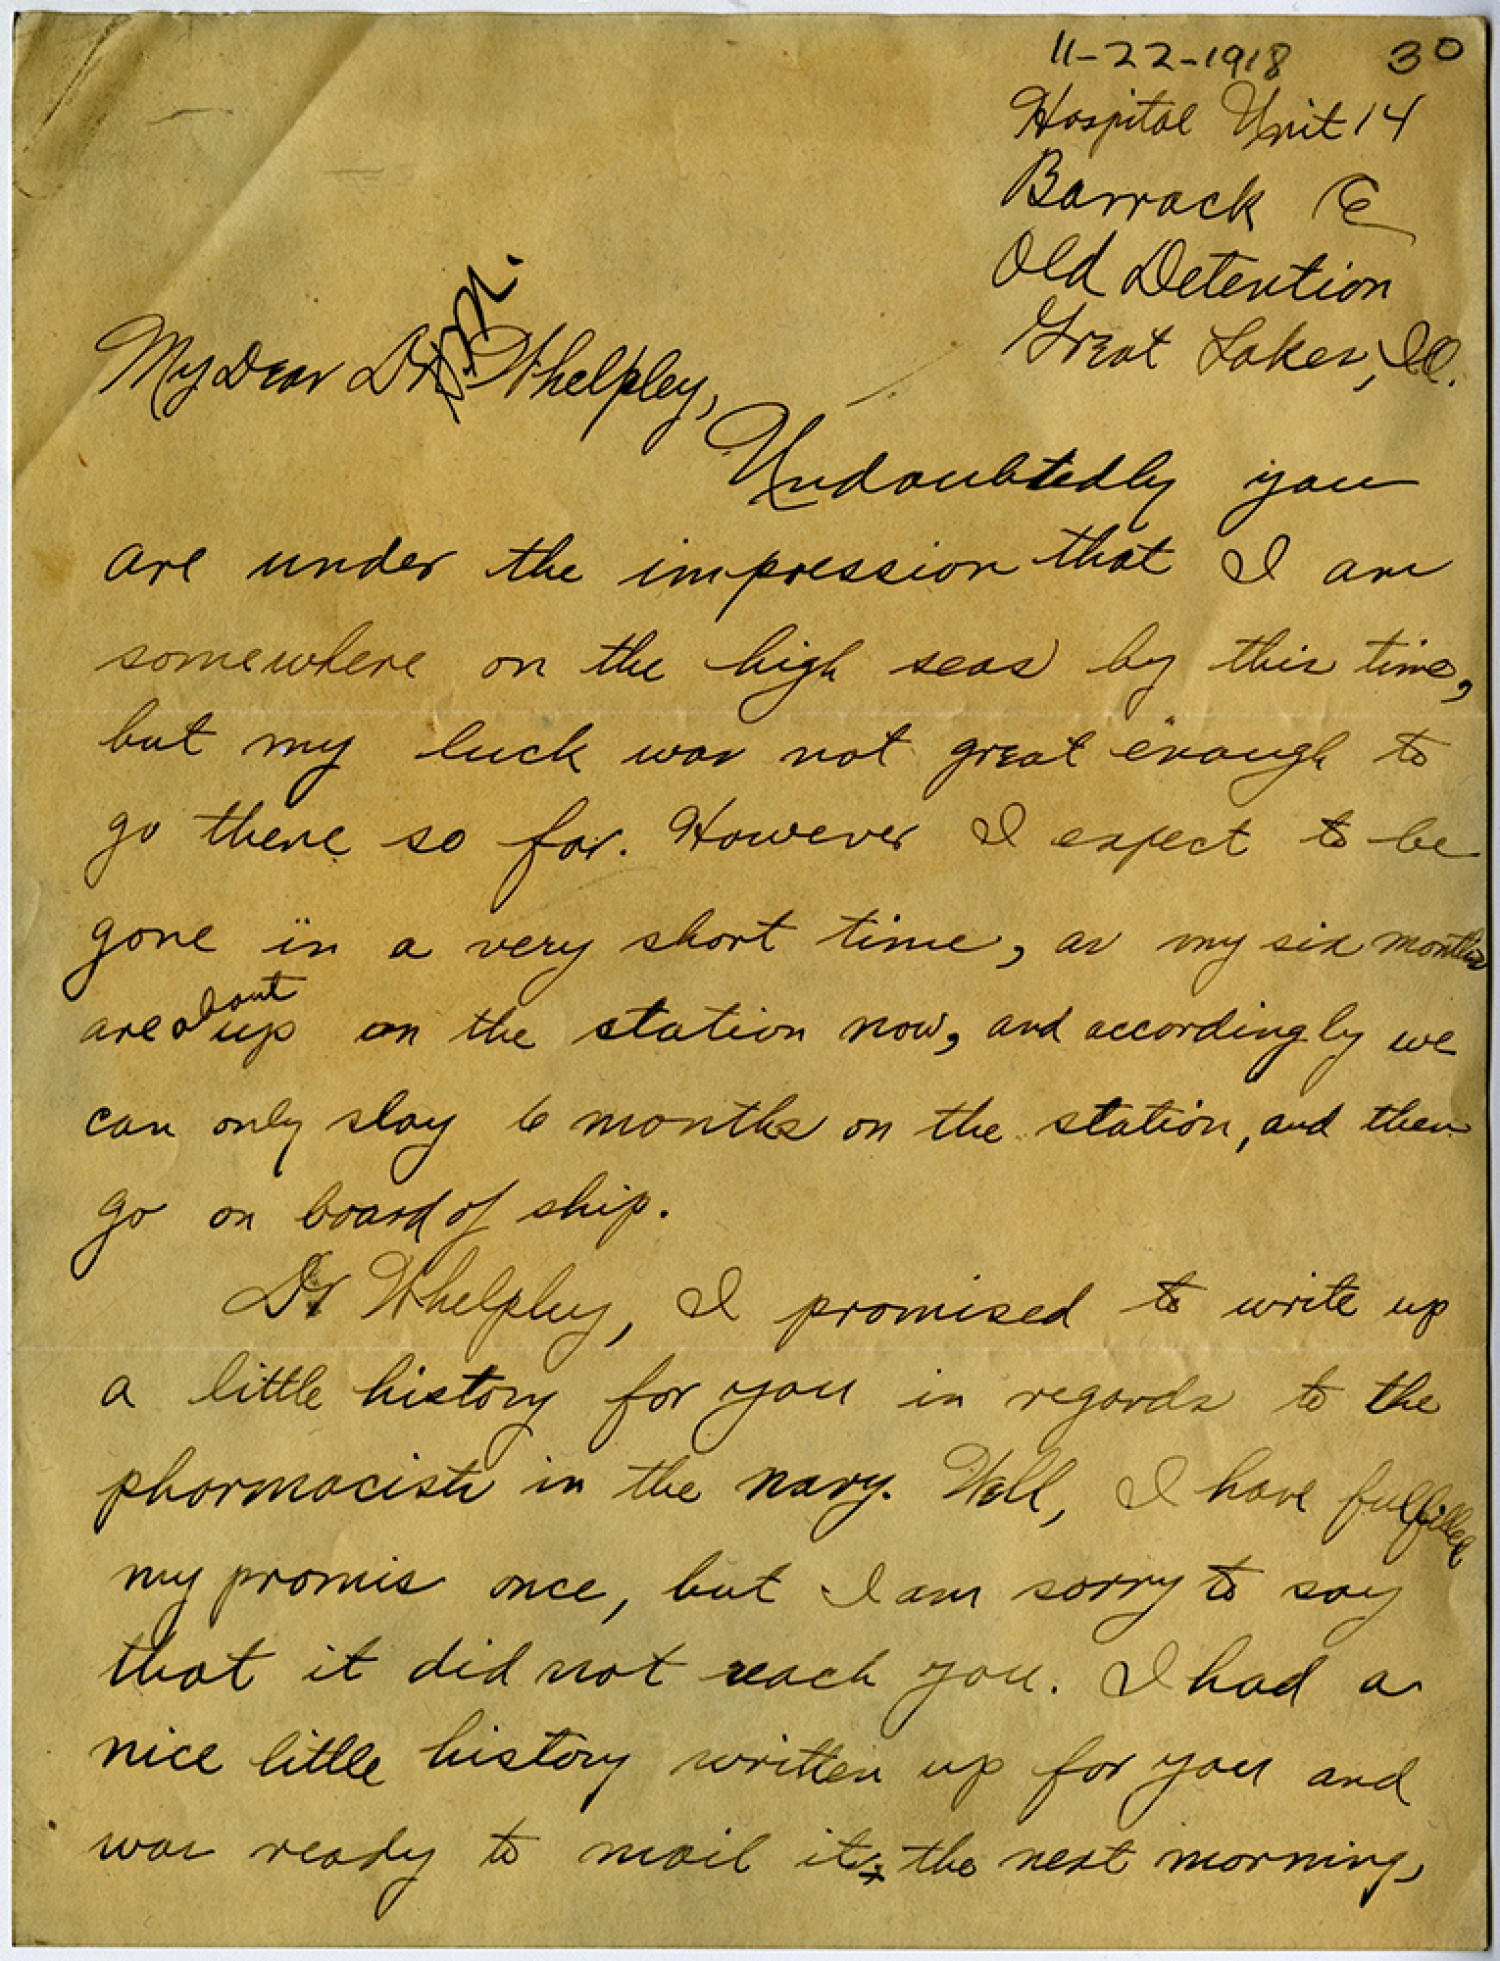 11-22-1918 30
Hospital Unit 14
Barrack E
Old Detention
Great Lakes, Ill.
My Dear Dr. H.M. Whelpley,
Undoubtedly you
are under the impression that I am
somewhere on the high seas by this time,
but my luck was not great enough to
go there so far. However I expect to be
gone in a very short time, as my six months
are about up on the station now, and accordingly we
can only stay 6 months on the station, and then
go on board of ship.
Dr Whelpley, I promised to write up
a little history for you in regards to the
pharmacists in the navy. Well, I have fulfilled
my promis once, but I am sorry to say
that it did not reach you. I had a
nice little history written up for you and
was ready to mail it the next morning,